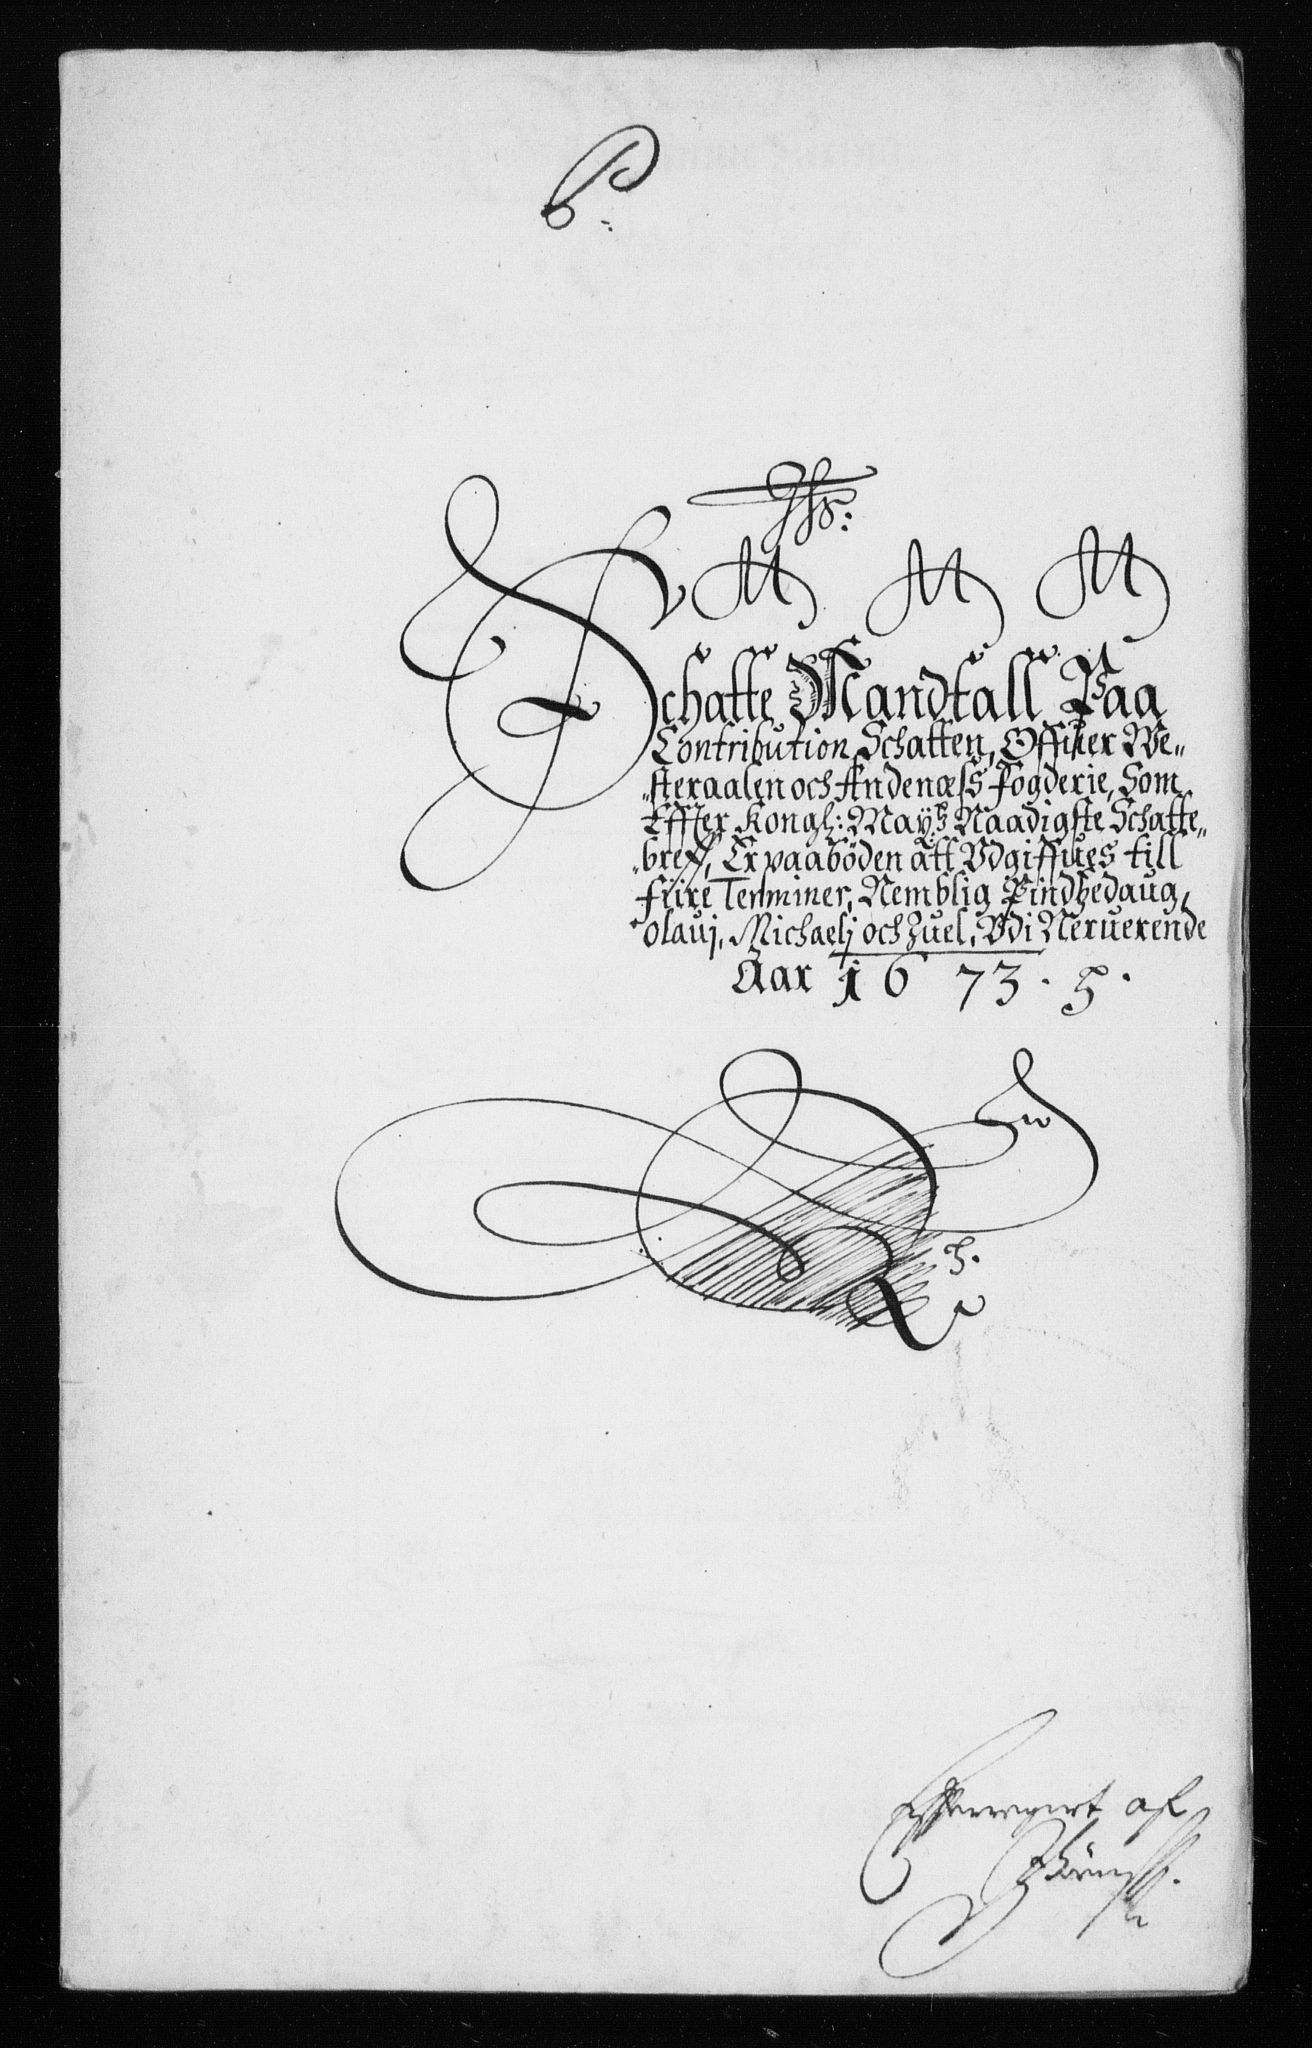 Schatte Mandtall Paa
Contribution Schatten, Offuer We„
„steraalen och Andenæss Fogderie, Som
Effter Kongl: Mayts Naadigste Schatte„
„breff, Er paaböden att Vdgiffues till
fiire Terminer, Nemblig Pindtzedaug,
olauj, Michaelj och Juel, Vdi Neruerende
Aar 1673.
af